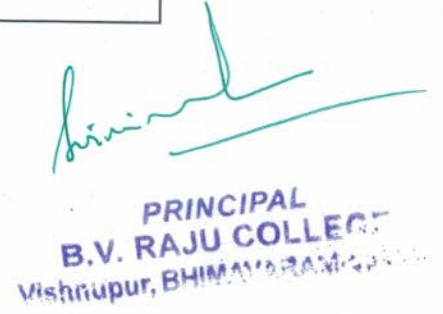 PRINCIPAL
B.V. RAJU COLLEGE
Vishnupur, BHIMAVARAM